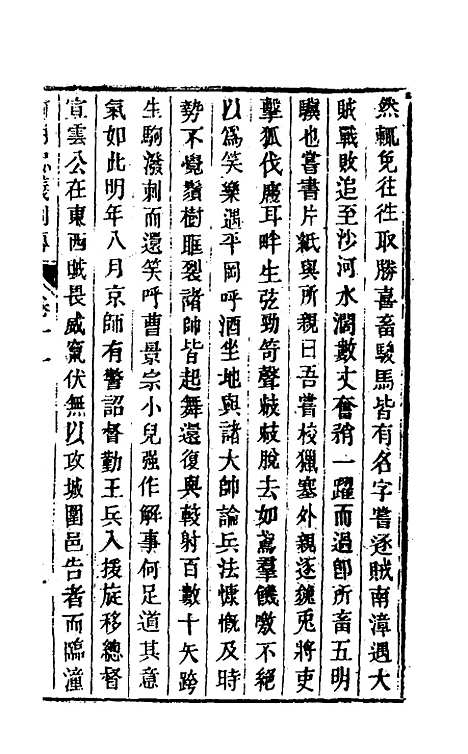 然輒免往往取勝喜畜駿馬皆有名字嘗逐賊南漳遇大
賊戰敗追至沙河水濶數丈奮策一躍而過卽所畜五明
驥也嘗書片紙與所親曰吾嘗校獵塞外親逐貔兎將吏
擊狐伐麂耳畔生弦勁笴聲歧歧脫去如鳶羣饑噭不絕
以爲笑樂遇平岡呼酒坐地與諸大帥論兵法慷慨及時
勢不覺鬚樹眶裂諸帥皆起舞還復與較射百數十矢跨
生駒潑剌而還笑呼曹景宗小兒强作解事何足道其意
氣如此明年八月京師有警詔督勤王兵入援旋移總督
宣雲公在東西賊畏威竄伏無以攻城圍邑告者而臨潼
卷十一